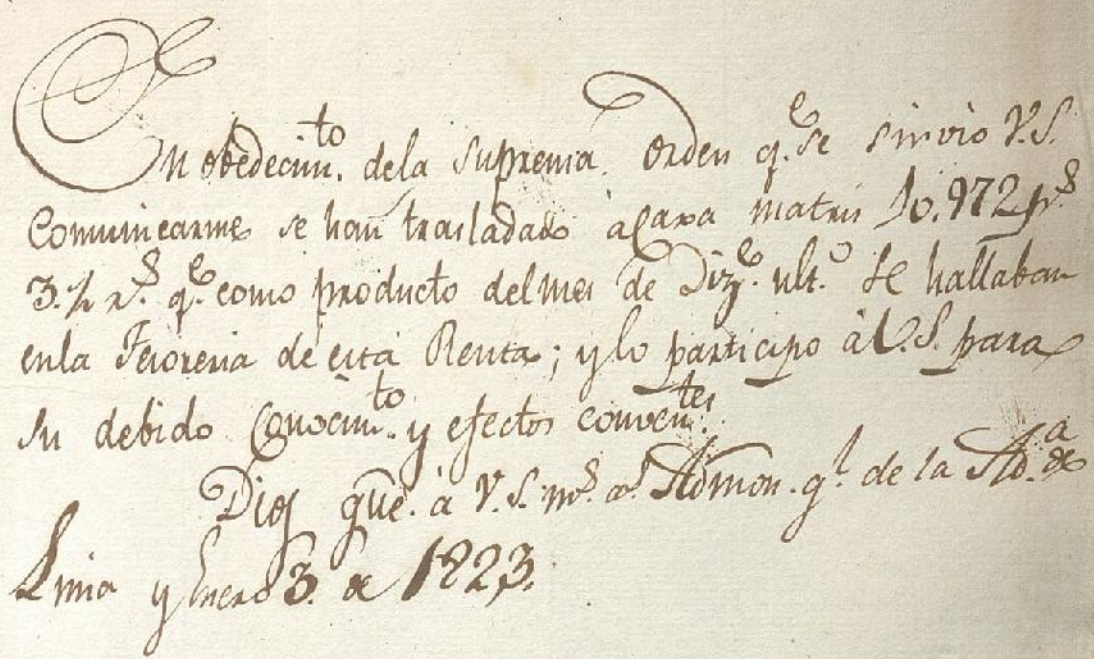 En obedecim.to dela Suprema Orden q.e se sirvio V.S.
Comunicarme se han trasladado à Caxa matris 10.972 p.s
3.½ r.s q.e como producto del mes de Diz.e ult.o se hallaban
enla Tesoreria de esta Renta; y lo participo à V.S. para
su debido Conocim.to y efectos conven.tes
Dios gũe. à V.S. m.s a.s Admon. g.l de la Ad.a de
Lima y Enero 3. de 1823.